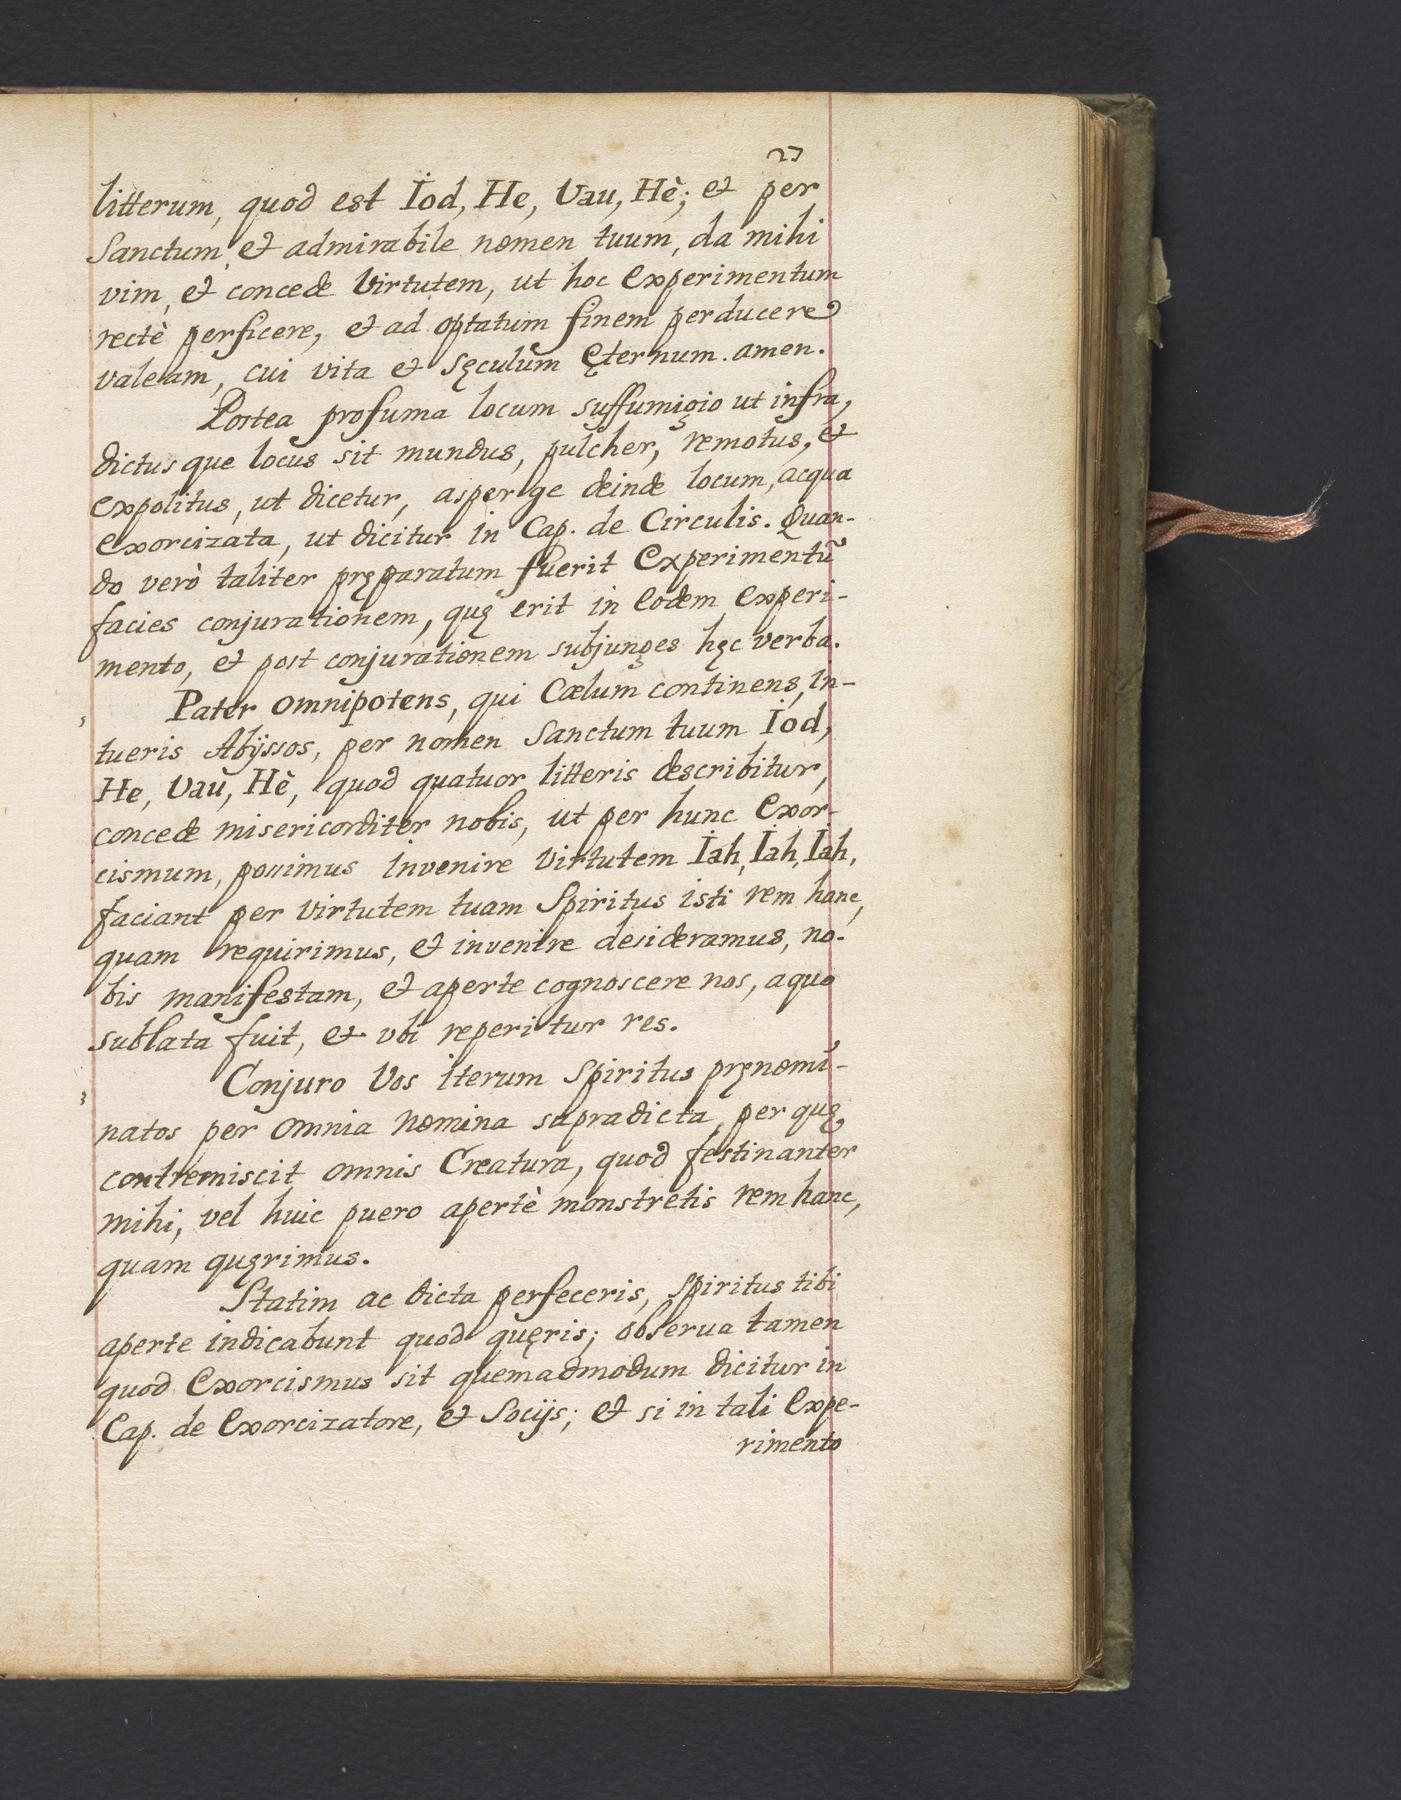 23
litterum, quod est Iod, He, Vau, Hè; et per
Sanctum, et admirabile nomen tuum, da mihi
vim, et concede Virtutem, ut hoc Experimentum
rectè perficere, et ad optatum finem perducere
valeam, cui vita et sęculum ęternum. amen.
Postea profuma locum suffumigio ut infra,
dictusque locus sit mundus, pulcher, remotus, et
expolitus, ut dicetur, asperge deinde locum, acqua
exorcizata, ut dicitur in Cap. de Circulis. Quan-
do verò taliter pręparatum fuerit Experimentũ
facies conjurationem, quę erit in eodem experi-
mento, et post conjurationem subjunges hęc verba.
Pater omnipotens, qui Cœlum continens, in-
tueris Abÿssos, per nomen Sanctum tuum Iod,
He, Vau, Hè, quod quatuor litteris describitur,
concede misericorditer nobis, ut per hunc Exor-
cismum, possimus invenire Virtutem Iah, Iah, Iah,
faciant per Virtutem tuam Spiritus isti rem hanc,
quam requirimus, et invenire desideramus, no-
bis manifestam, et aperte cognoscere nos, a quo
sublata fuit, et vbi reperitur res.
Conjuro Vos iterum Spiritus pręnomi-
natos per omnia nomina supradicta, per quę,
contremiscit omnis Creatura, quod festinanter
mihi, vel huic puero apertè monstretis rem hanc,
quam quęrimus.
Statim ac dicta perfeceris, Spiritus tibi
aperte indicabunt quod quęris; obserua tamen
quod Exorcismus sit quemadmodum dicitur in
Cap. de Exorcizatore, et Socijs; et si in tali Expe-
rimento